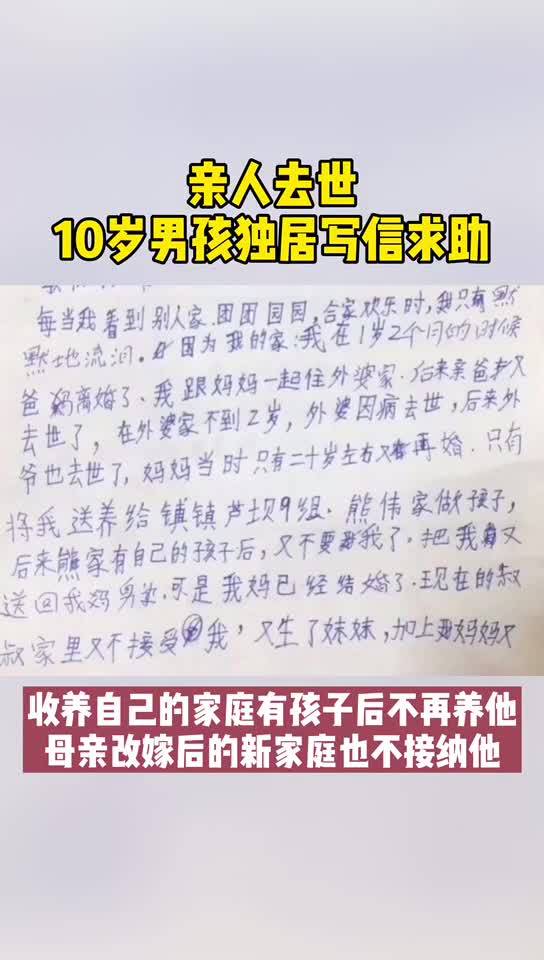 亲人去世
10岁男孩独居写信求助
每当我看到别人家.团团园园,合家欢乐时,我只有默
默地流泪。因为我的家:我在1岁2个月的时候
爸妈离婚了、我跟妈妈一起住外婆家.后来亲爸爸又
去世了,在外婆家不到2岁,外婆因病去世,后来外
爷也去世了,妈妈当时只有二十岁左右又再婚.只有
将我送养给镇芦坝9组.熊伟家做孩子,
后来熊家有自己的孩子后,又不要我了.把我又
送回我妈.可是我妈已经结婚了.现在的叔
叔家里又不接受我,又生了妹妹,加上妈妈又
收养自己的家庭有孩子后不再养他
母亲改嫁后的新家庭也不接纳他